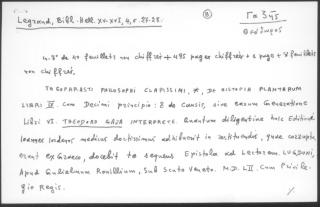 Legrand, Bibl. Hell. XV-XVI, 4, σ. 27-28.
Β
Γα 345
Θεόδωρος
4.8° de 40 feuillets non chiffrés + 495 pages chiffrées + 1 page + 8 feuillets
non chiffrés.
PHILOSOPHI CLARISSIMI, DE HISTORIA PLANTARUM
LIBRI IX. Cum Decimi principio: & de Causis, sive earum Generatione
Libri VI. THEODORO GAZA INTERPRETE. Quantum diligentiae huic Editioni
Ioannes Iordanus medicus doctissimus adhibuerit in restituendis, quae corrupta
erant ex Graeco, docebit te sequens Epistola ad Lectorem. LUGDUNI,
Apud Gulielmum Rouillium, Sub Scuto Veneto. M.D.LII. Cum Privile-
gio Regis.